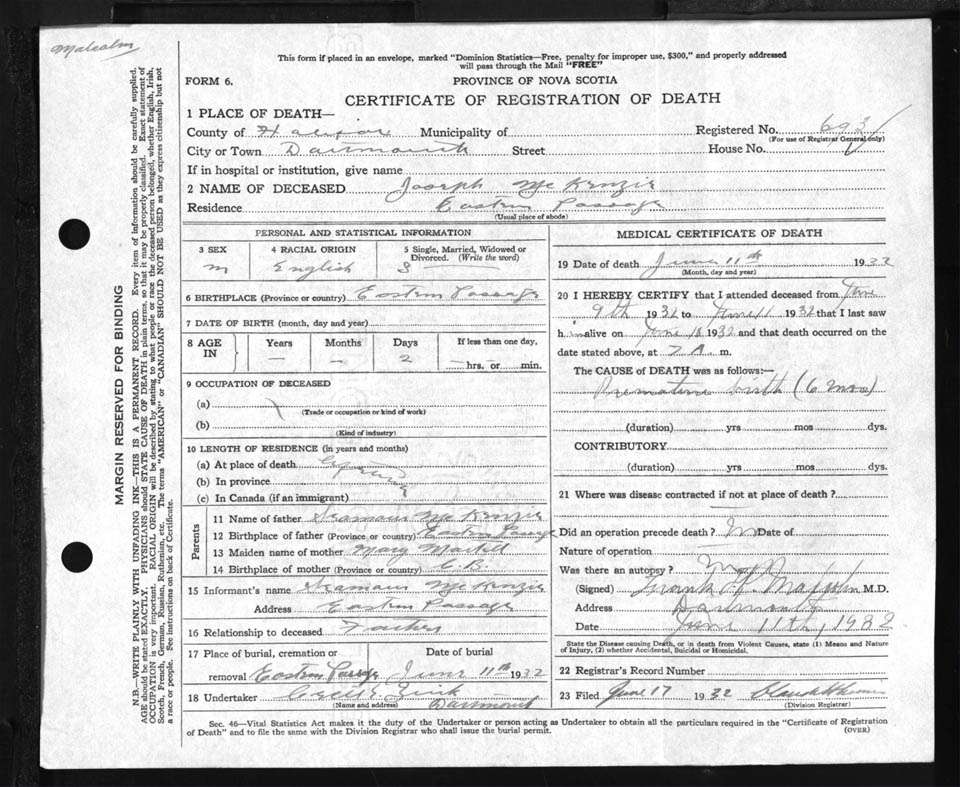 Malcolm
This form if placed in an envelope, marked "Dominion Statistics—Free, penalty for improper use, $300," and properly addressed
will pass through the Mail "FREE"
FORM 6.
PROVINCE OF NOVA SCOTIA
CERTIFICATE OF REGISTRATION OF DEATH
1 PLACE OF DEATH—
County of Halifax Municipality of Registered No. 693
(For use of Registrar General only)
City or Town Dartmouth Street House No.
If in hospital or institution, give name
2 NAME OF DECEASED Joseph McKenzie
Residence Eastern Passage
(Usual place of abode)
PERSONAL AND STATISTICAL INFORMATION
3 SEX 4 RACIAL ORIGIN 5 Single, Married, Widowed or
Divorced. (Write the word)
m English S
6 BIRTHPLACE (Province or country) Eastern Passage
7 DATE OF BIRTH (month, day and year)
8 AGE IN Years Months Days If less than one day,
— — 2 hrs. or min.
9 OCCUPATION OF DECEASED
(a)
(Trade or occupation or kind of work)
(b)
(Kind of industry)
10 LENGTH OF RESIDENCE (in years and months)
(a) At place of death
(b) In province
(c) In Canada (if an immigrant)
Parents
11 Name of father McKenzie
12 Birthplace of father (Province or country) Eastern Passage
13 Maiden name of mother Mary Martell
14 Birthplace of mother (Province or country) C.B.
15 Informant's name McKenzie
Address Eastern Passage
16 Relationship to deceased Father
17 Place of burial, cremation or Date of burial
removal Eastern Passage June 11th 1932
18 Undertaker Zink
(Name and address) Dartmouth
MEDICAL CERTIFICATE OF DEATH
19 Date of death June 11th 1932
(Month, day and year)
20 I HEREBY CERTIFY that I attended deceased from June
9th 1932 to June 11 1932 that I last saw
him alive on June 1932 and that death occurred on
date stated above, at 7 A. m.
The CAUSE of DEATH was as follows:—
Premature birth (6 mos)
(duration) yrs mos dys.
CONTRIBUTORY.
(duration) yrs mos dys.
21 Where was disease contracted if not at place of death?
Did an operation precede death? no Date of
Nature of operation
Was there an autopsy?
(Signed) Frank M.D.
Address Dartmouth
Date June 11th, 1932
State the Disease causing Death, or in death from Violent Causes, state (1) Means and Nature
of Injury, (2) whether Accidental, Suicidal or Homicidal.
22 Registrar's Record Number
23 Filed June 17 1932
(Division Registrar)
Sec. 46—Vital Statistics Act makes it the duty of the Undertaker or person acting as Undertaker to obtain all the particulars required in the "Certificate of Registration
of Death" and to file the same with the Division Registrar who shall issue the burial permit.
(OVER)
MARGIN RESERVED FOR BINDING
N.B.—WRITE PLAINLY WITH UNFADING INK—THIS IS A PERMANENT RECORD. Every item of information should be carefully supplied.
AGE should be stated EXACTLY. PHYSICIANS should STATE CAUSE OF DEATH in plain terms, so that it may be properly classified. Exact statement of
OCCUPATION is very important. RACIAL ORIGIN will be described by stating to what people or race the deceased person belonged, whether English, Irish,
Scotch, French, German, Russian, Ruthenian, etc. The terms "AMERICAN" or "CANADIAN" SHOULD NOT BE USED as they express citizenship but not
a race or people. See instructions on back of Certificate.